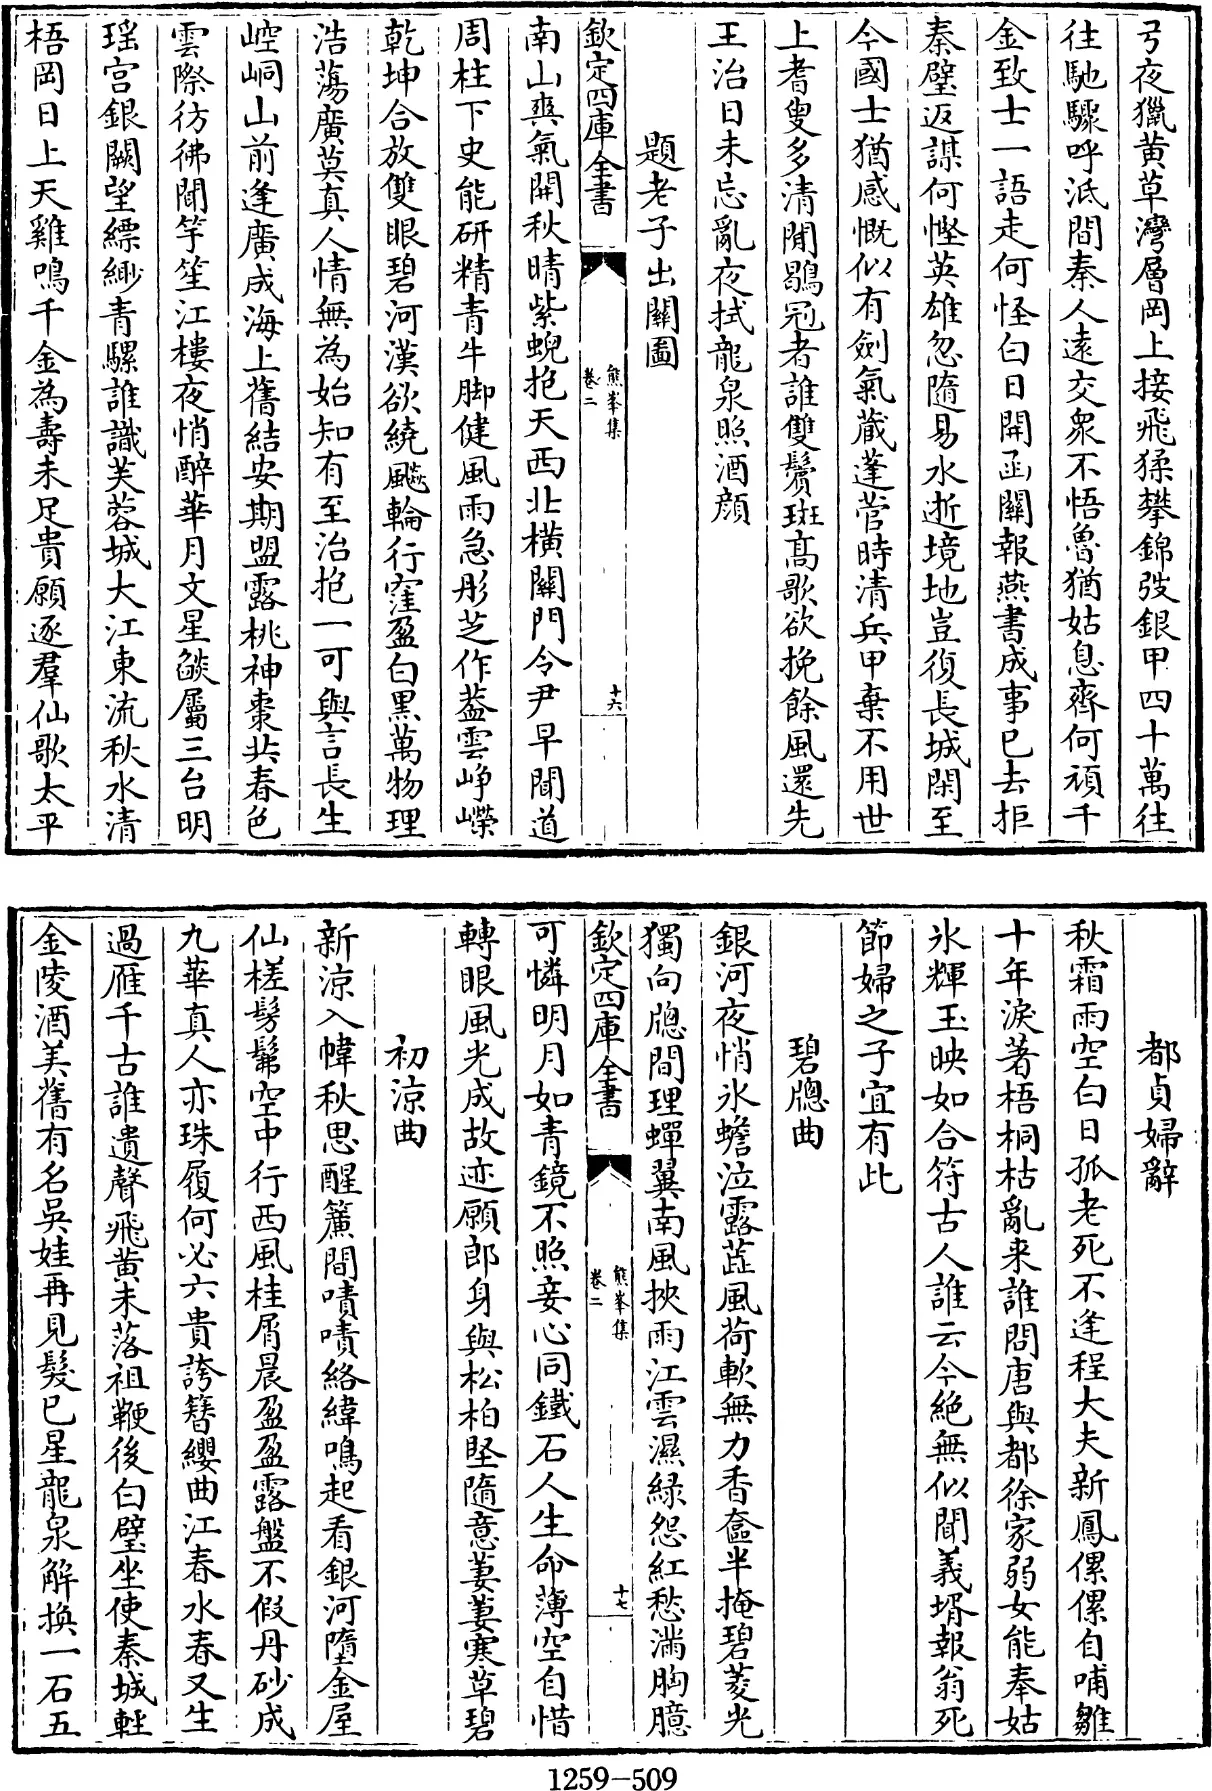 弓夜獵黄草灣層岡上接飛猱攀錦弢銀甲四十萬往
往馳驟呼泜間秦人遠交衆不悟魯猶姑息齊何頑千
金致士一語走何怪白日開函關報燕書成事已去拒
秦璧返謀何慳英雄忽隨易水逝境地豈復長城閑至
今國士猶感慨似有劍氣蔵蓬菅時清兵甲棄不用世
上耆叟多清閒鶡冠者誰雙鬢斑髙歌欲挽餘風還先
王治日未忘亂夜拭龍泉照酒顔
題老子出關圖
欽定四庫全書
熊峯集
卷二
十六
南山爽氣開秋晴紫蜺抱天西北橫關門令尹早聞道
周柱下史能研精青牛脚健風雨急彤芝作葢雲崢嶸
乾坤合放雙眼碧河漢欲繞飈輪行窪盈白黒萬物理
浩蕩廣莫真人情無為始知有至治抱一可與言長生
崆峒山前逢廣成海上舊結安期盟露桃神棗共春色
雲際彷彿聞竽笙江樓夜悄醉華月文星燄屬三台明
瑶宫銀闕望縹緲青騾誰識芙蓉城大江東流秋水清
梧岡日上天雞鳴千金為壽未足貴願逐羣仙歌太平
都貞婦辭
秋霜雨空白日孤老死不逢程大夫新鳳傫傫自哺雛
十年淚著梧桐枯亂来誰問唐與都徐家弱女能奉姑
氷輝玉映如合符古人誰云今絶無似聞義壻報翁死
節婦之子宜有此
碧牕曲
銀河夜悄氷蟾泣露蕋風荷軟無力香奩半掩碧菱光
獨向牕間理蟬翼南風挾雨江雲濕緑怨紅愁滿胸臆
欽定四庫全書
熊峯集
卷二
十七
可憐明月如青鏡不照妾心同鐵石人生命薄空自惜
轉眼風光成故迹願郎身與松柏堅隨意萋萋寒草碧
初涼曲
新涼入幃秋思醒簾間嘖嘖絡緯鳴起看銀河墮金屋
仙槎髣髴空中行西風桂屑晨盈盈露盤不假丹砂成
九華真人亦珠履何必六貴誇簪纓曲江春水春又生
過雁千古誰遺聲飛黄未落祖鞭後白璧坐使秦城輕
金陵酒美舊有名吳娃再見髮已星龍泉解換一石五
1259－509